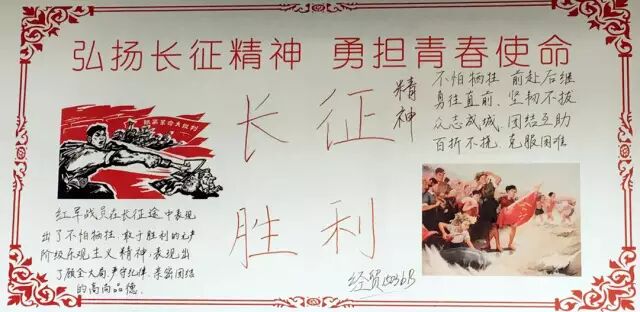 弘扬长征精神 勇担青春使命
长征
精神
胜利
不怕牺牲 前赴后继
勇往直前、坚韧不拔
众志成城、团结互助
百折不挠、克服困难
红军战员在长征途中表现
出了不怕牺牲、敢于胜利的无产
阶级乐观主义精神,表现出
了顾全大局、严守纪律、亲密团结
的高尚品德.